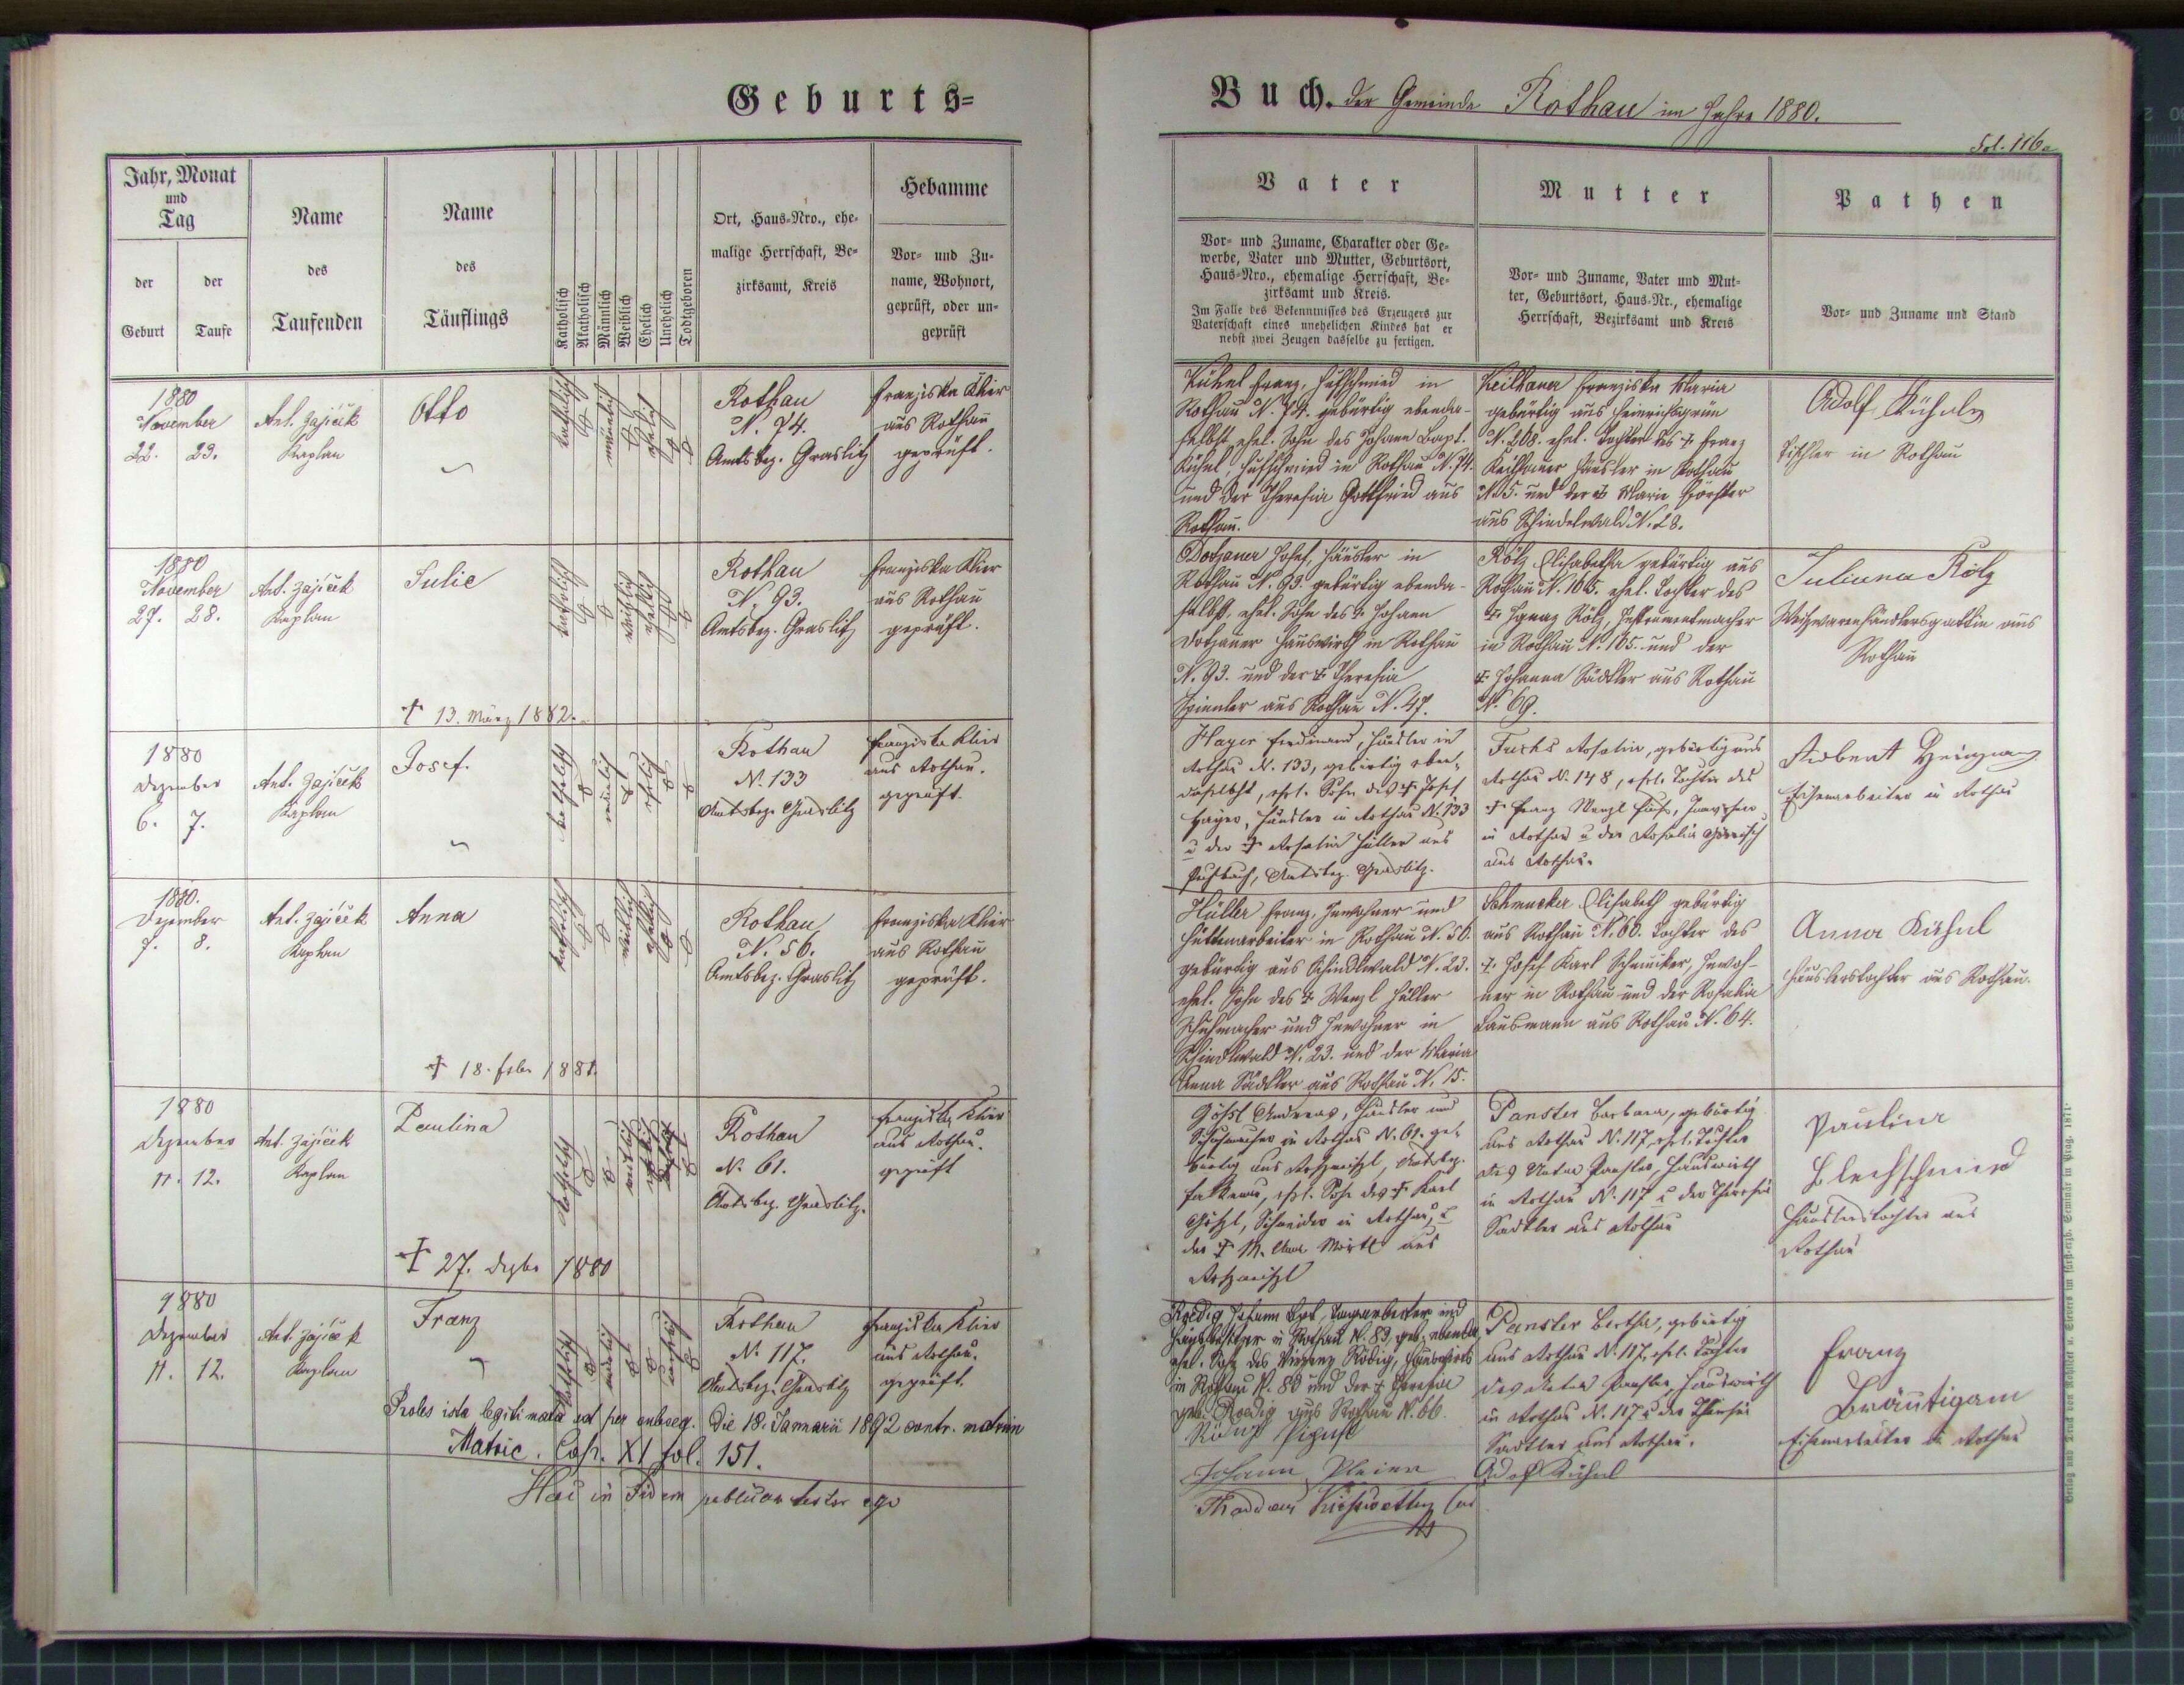 Geburts=
Buch. der Gemeinde Rothau im Jahre 1880.
Fol. 116.
Jahr, Monat
und
Tag
der
Geburt
der
Taufe
Name
des
Taufenden
Name
des
Täuflings
Katholisch
Akatholisch
Männlich
Weiblich
Ehelich
Unehelich
Todtgeboren
Ort, Haus-Nro., ehe-
malige Herrschaft, Be-
zirksamt, Kreis
Hebamme
Vor- und Zu-
name, Wohnort,
geprüft, oder un-
geprüft
Vater
Vor- und Zuname, Charakter oder Ge-
werbe, Vater und Mutter, Geburtsort,
Haus-Nro., ehemalige Herrschaft, Be-
zirksamt und Kreis.
Im Falle des Bekenntnisses des Erzeugers zur
Vaterschaft eines unehelichen Kindes hat er
nebst zwei Zeugen dasselbe zu fertigen.
Mutter
Vor- und Zuname, Vater und Mut-
ter, Geburtsort, Haus-Nr., ehemalige
Herrschaft, Bezirksamt und Kreis
Pathen
Vor- und Zuname und Stand
1880
November
22. 23.
Ant. Zajíček
Kaplan
Otto
katholisch
männlich
ehelich
Rothau
N. 74.
Amtsbez. Graslitz
Franziska Klier
aus Rothau
geprüft.
Kühnl Franz, Hufschmied in
Rothau N. 74. gebürtig ebenda-
selbst, ehel. Sohn des Johann Bapt.
Kühnl, Hufschmied in Rothau N. 74.
und der Theresia Gottfried aus
Rothau.
Keilhauer Franziska Maria
gebürtig aus Heinrichsgrün
N. 268. ehel. Tochter des † Franz
Keilhauer Häusler in Rothau
N. 5. und der † Marie
aus Schindelwald N. 28.
Adolf Kühnl
Tischler in Rothau
1880
November
27. 28.
Ant. Zajíček
Kaplan
Julie
† 13. März 1882.
katholisch
weiblich
ehelich
Rothau
N. 93.
Amtsbez. Graslitz
Franziska Klier
aus Rothau
geprüft.
Dotzauer Josef, Häusler in
Rothau N. 93. gebürtig ebenda-
selbst, ehel. Sohn des † Johann
Dotzauer Hauswirth in Rothau
N. 93. und der † Theresia
aus Rothau N. 47.
Rölz Elisabetha gebürtig aus
Rothau N. 105. ehel. Tochter des
† Ignaz Rölz, Instrumentmacher
in Rothau N. 105. und der
† Johanna Sädtler aus Rothau
N. 69.
Juliana Rölz
Weißwarenhändlersgattin aus
Rothau
1880
Dezember
6. 7.
Ant. Zajíček
Kaplan
Josef.
katholisch
männlich
ehelich
Rothau
N. 133
Amtsbez. Graslitz
Franziska Klier
aus Rothau.
geprüft.
Hager Ferdinand, Häusler in
Rothau N. 133, gebürtig eben-
daselbst, ehel. Sohn des † Josef
Hager, Häusler in Rothau N. 133
u der † Rosalia Hüller aus
Amtsbez. Graslitz.
Fuchs Rosalia, gebürtig aus
Rothau N. 148, ehel. Tochter des
† Franz Wenzl Fuchs, Inwohner
in Rothau u der Rosalia
aus Rothau.
Eisenarbeiter in Rothau
1880.
Dezember
7. 8.
Ant. Zajíček
Kaplan
Anna
† 18. Feber 1881.
katholisch
weiblich
ehelich
Rothau
N. 56.
Amtsbez. Graslitz
Franziska Klier
aus Rothau
geprüft.
Hüller Franz, Inwohner und
Hüttenarbeiter in Rothau N. 56.
gebürtig aus Schindlwald N. 23.
ehel. Sohn des † Wenzl Hüller
Schuhmacher und Inwohner in
Schindlwald N. 23. und der Maria
Anna Sädtler aus Rothau N. 15.
Schmucker Elisabeth gebürtig
aus Rothau N. 60. Tochter des
† Josef Karl Schmucker, Inwoh-
ner in Rothau und der Rosalia
Lausmann aus Rothau N. 64.
Anna Kühnl
Häuslerstochter aus Rothau.
1880
Dezember
11. 12.
Ant. Zajíček
Kaplan
Paulina
† 27. Dezbr 1880
katholisch
weiblich
Rothau
N. 61.
Amtsbez. Graslitz.
Franziska Klier
aus Rothau.
geprüft
Andreas, Häusler und
Schuhmacher in Rothau N. 61. ge-
bürtig aus Amtsbez.
Falkenau, ehel. Sohn des † Karl
Schneider in Rothau, u
der † M. Anna aus
Panster Barbara, gebürtig
aus Rothau N. 117, ehel. Tochter
des Anton Panster, Hauswirth
in Rothau N. 117 u der Theresia
Sädtler aus Rothau
Paulina
Blechschmied
Häuslerstochter aus
Rothau
1880
Dezember
11. 12.
Ant. Zajíček
Kaplan
Franz
katholisch
männlich
unehelich
Rothau
N. 117.
Amtsbez. Graslitz
Franziska Klier
aus Rothau.
geprüft.
Proles ista legitimata est per subseq. Die 18. Januarii 1892 contr. matrim
Matric. Cop. XI fol. 151.
Hac in Fidem publicam testor ego
Roedig Johann Bapt., Tagarbeiter und
Hausbesitzer in Rothau N. 89, geb. ebenda,
ehel. Sohn des Vinzenz Rödig, Hauswirts
in Rothau N. 80 und der † Theresia
geb. Roedig aus Rothau N. 66.
Johann Pleier
Adolf Kühnl
Panster Bertha, gebürtig
aus Rothau N. 117, ehel. Tochter
des Anton Panster, Hauswirth
in Rothau N. 117 u der Theresia
Sadtler aus Rothau.
Franz
Bräutigam
Eisenarbeiter in Rothau